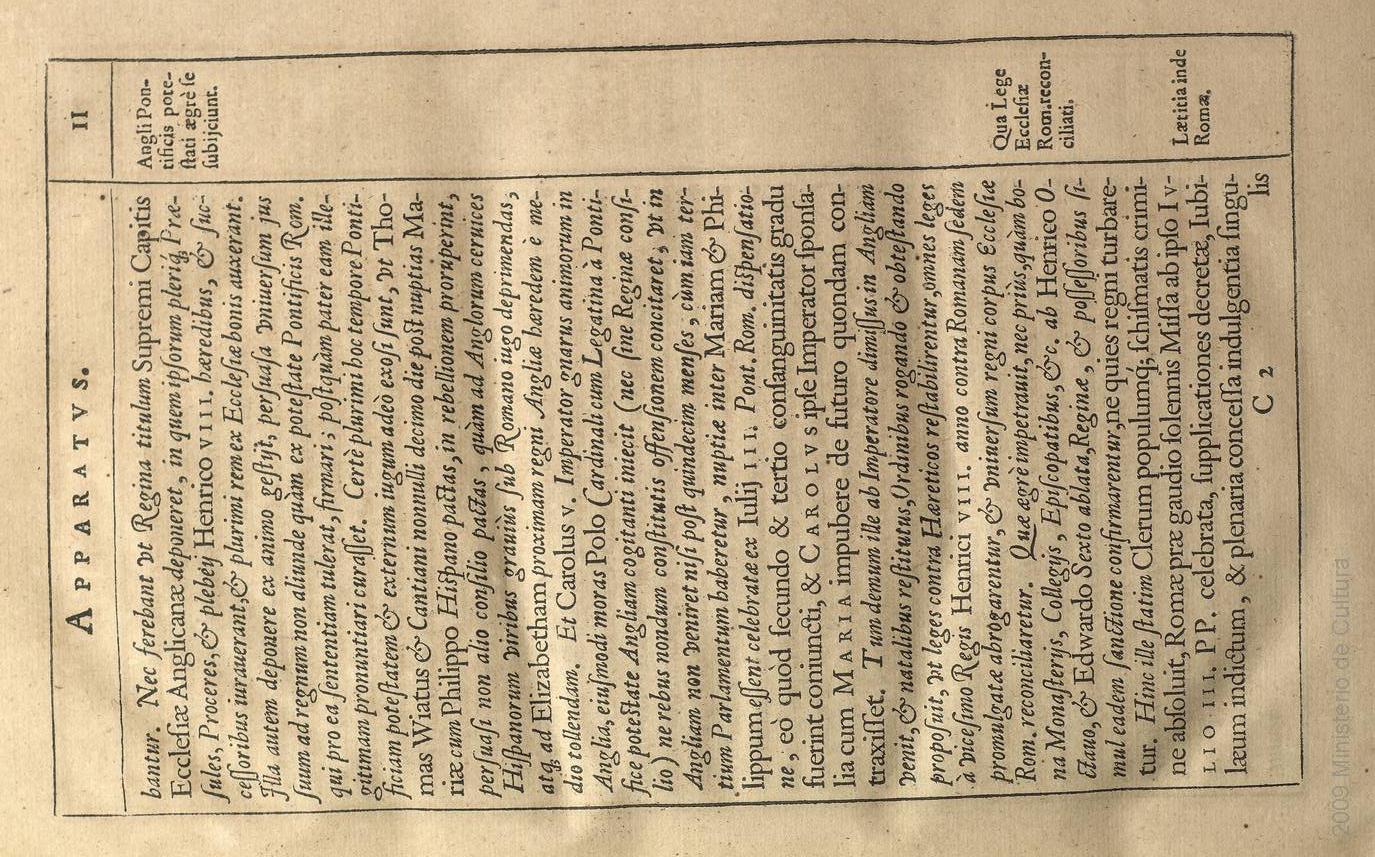 APPARATVS. II
bantur. Nec ferebant vt Regina titulum Supremi Capitis
Ecclesiæ Anglicanæ deponeret, in quem ipsorum pleriq; Præ-
sules, Proceres, & plebeÿ Henrico VIII. hæredibus, & suc-
cessoribus iurauerant, & plurimi rem ex Ecclesiæ bonis auxerant.
Illa autem deponere ex animo gestijt, persuasa vniuersum jus
suum ad regnum non aliunde quàm ex potestate Pontificis Rom.
qui pro ea sententiam tulerat, firmari; postquàm pater eam ille-
gitimam pronuntiari curasset. Certè plurimi hoc tempore Ponti-
ficiam potestatem & externum iugum adeò exosi sunt, vt Tho-
mas Wiatus & Cantiani nonnulli decimo die post nuptias Ma-
riæ cum Philippo Hispano pactas, in rebellionem proruperint,
persuasi non alio consilio pactas, quàm ad Anglorum ceruices
Hispanorum viribus grauiùs sub Romano iugo deprimendas,
atq; ad Elizabetham proximam regni Angliæ hæredem è me-
dio tollendam. Et Carolus v. Imperator gnarus animorum in
Anglia, eiusmodi moras Polo Cardinali cum Legatinâ à Ponti-
fice potestate Angliam cogitanti iniecit (nec sine Reginæ consi-
lio) ne rebus nondum constitutis offensionem concitaret, vt in
Angliam non veniret nisi post quindecim menses, cum iam ter-
tium Parlamentum haberetur, nuptiæ inter Mariam & Phi-
lippum essent celebratæ ex Iulij III. Pont. Rom. dispensatio-
ne, eò quòd secundo & tertio consanguinitatis gradu
fuerint coniuncti, & CAROLVS ipse Imperator sponsa-
lia cum MARIA impubere de futuro quondam con-
traxisset. Tum demum ille ab Imperatore dimissus in Angliam
venit, & natalibus restitutus, Ordinibus rogando & obtestando
proposuit, vt leges contra Hæreticos restabilirentur, omnes leges
à vicesimo Regis Henrici VIII. anno contra Romanam sedem
promulgatæ abrogarentur, & vniuersum regni corpus Ecclesiæ
Rom. reconciliaretur. Quæ ægrè impetrauit, nec priùs, quàm bo-
na Monasterijs, Collegijs, Episcopatibus, &c. ab Henrico O-
ctauo, & Edwardo Sexto ablata, Reginæ, & possessoribus si-
mul eadem sanctione confirmarentur, ne quies regni turbare-
tur. Hinc ille statim Clerum populumq; schismatis crimi-
ne absoluit, Romæ præ gaudio solennis Missa ab ipso IV-
LIO III. PP. celebrata, supplicationes decretæ, Iubi-
læum indictum, & plenaria concessa indulgentia singu-
C 2 lis
Angli Pon-
tificis pote-
stati ægrè se
subijciunt.
Qua Lege
Ecclesiæ
Rom. recon-
ciliati.
Lætitia inde
Romæ.
2009 Ministerio de Cultura